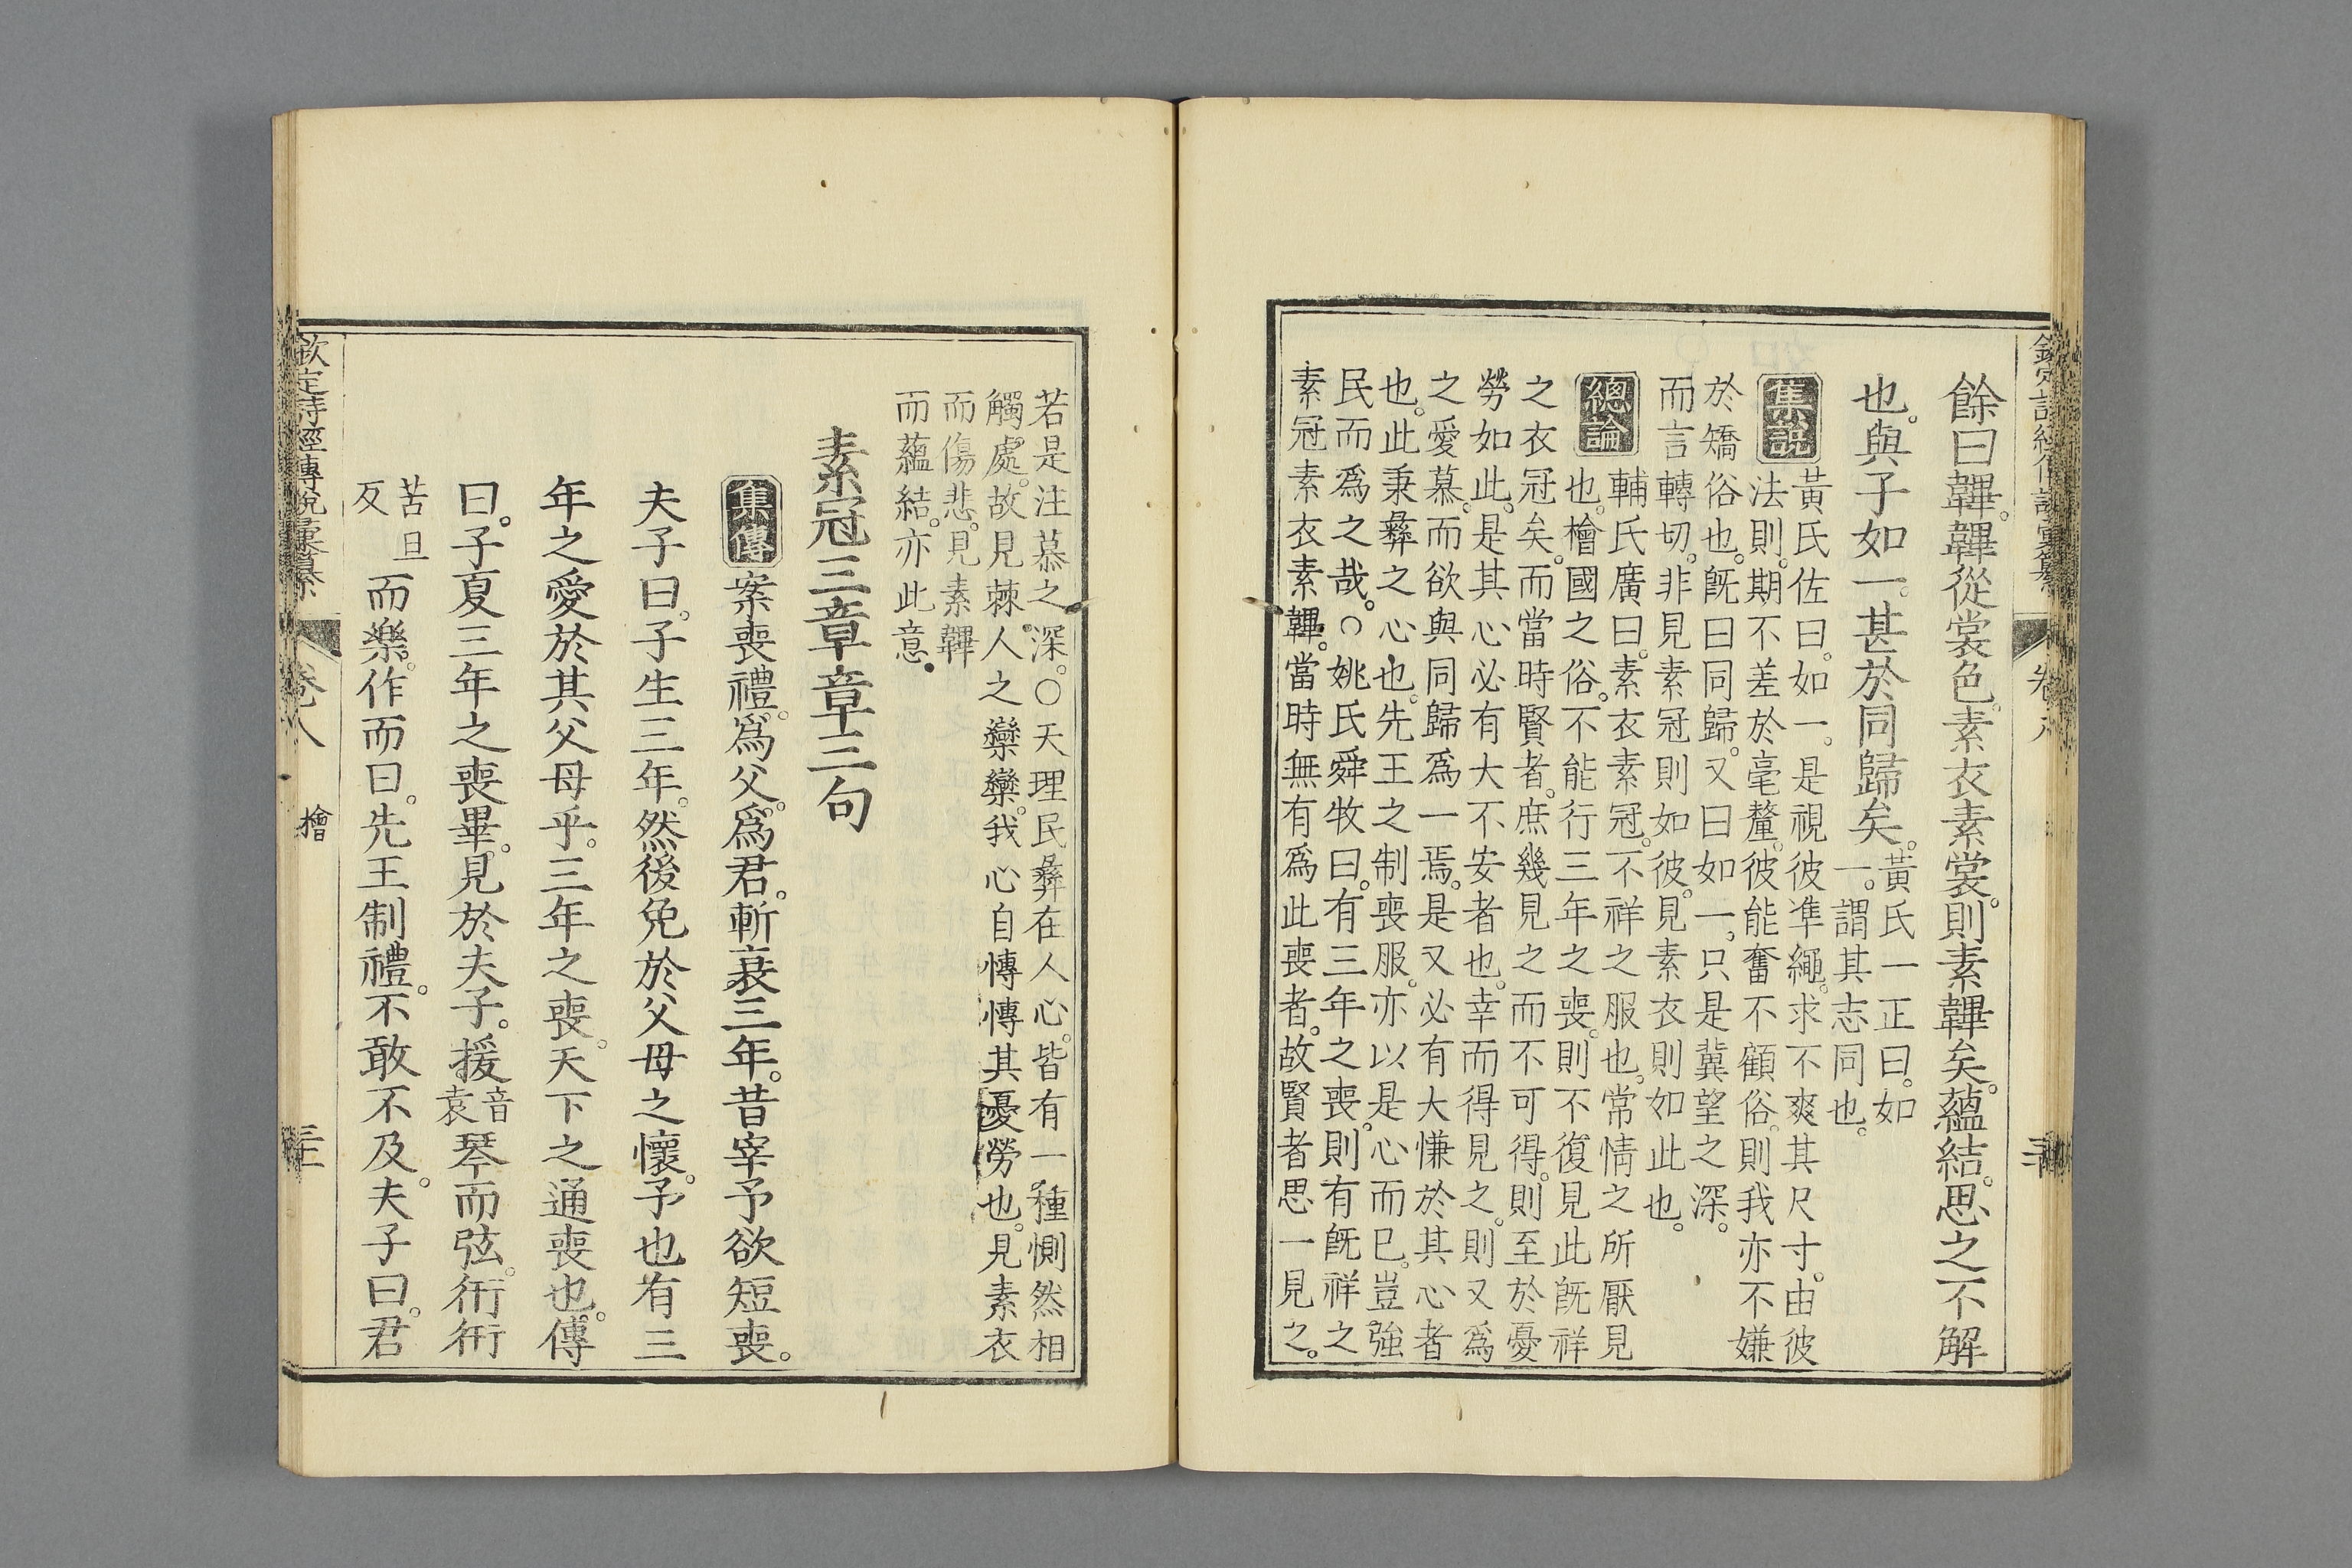 餘曰韠。韠從裳色。素衣素裳。則素韠矣。蘊結。思之不解
也。與子如一。甚於同歸矣。黃氏一正曰。如
一。謂其志同也。
集說 黃氏佐曰。如一。是視彼準繩。求不爽其尺寸。由彼
法則。期不差於毫釐。彼能奮不顧俗。則我亦不嫌
於矯俗也。旣曰同歸。又曰如一。只是冀望之深。
而言轉切。非見素冠則如彼。見素衣則如此也。
總論 輔氏廣曰。素衣素冠。不祥之服也。常情之所厭見
也。檜國之俗。不能行三年之喪。則不復見此旣祥
之衣冠矣。而當時賢者。庶幾見之而不可得。則至於憂
勞如此。是其心必有大不安者也。幸而得見之。則又爲
之愛慕。而欲與同歸爲一焉。是又必有大慊於其心者
也。此秉彝之心也。先王之制喪服。亦以是心而已。豈強
民而爲之哉。○姚氏舜牧曰。有三年之喪。則有旣祥之
素冠素衣素韠。當時無有爲此喪者。故賢者思一見之。
若是注慕之深。○天理民彝在人心。皆有一種惻然相
觸處。故見棘人之欒欒。我心自慱慱其憂勞也。見素衣
而傷悲。見素韠
而蘊結。亦此意。
素冠三章章三句
集傳 案喪禮。爲父。爲君。斬衰三年。昔宰予欲短喪。
夫子曰。子生三年。然後免於父母之懷。予也有三
年之愛於其父母乎。三年之喪。天下之通喪也。傳
曰。子夏三年之喪畢。見於夫子。援音袁琴而弦。衎衎
苦旦反而樂。作而曰。先王制禮。不敢不及。夫子曰。君
欽定詩經傳說彙纂 卷八 檜